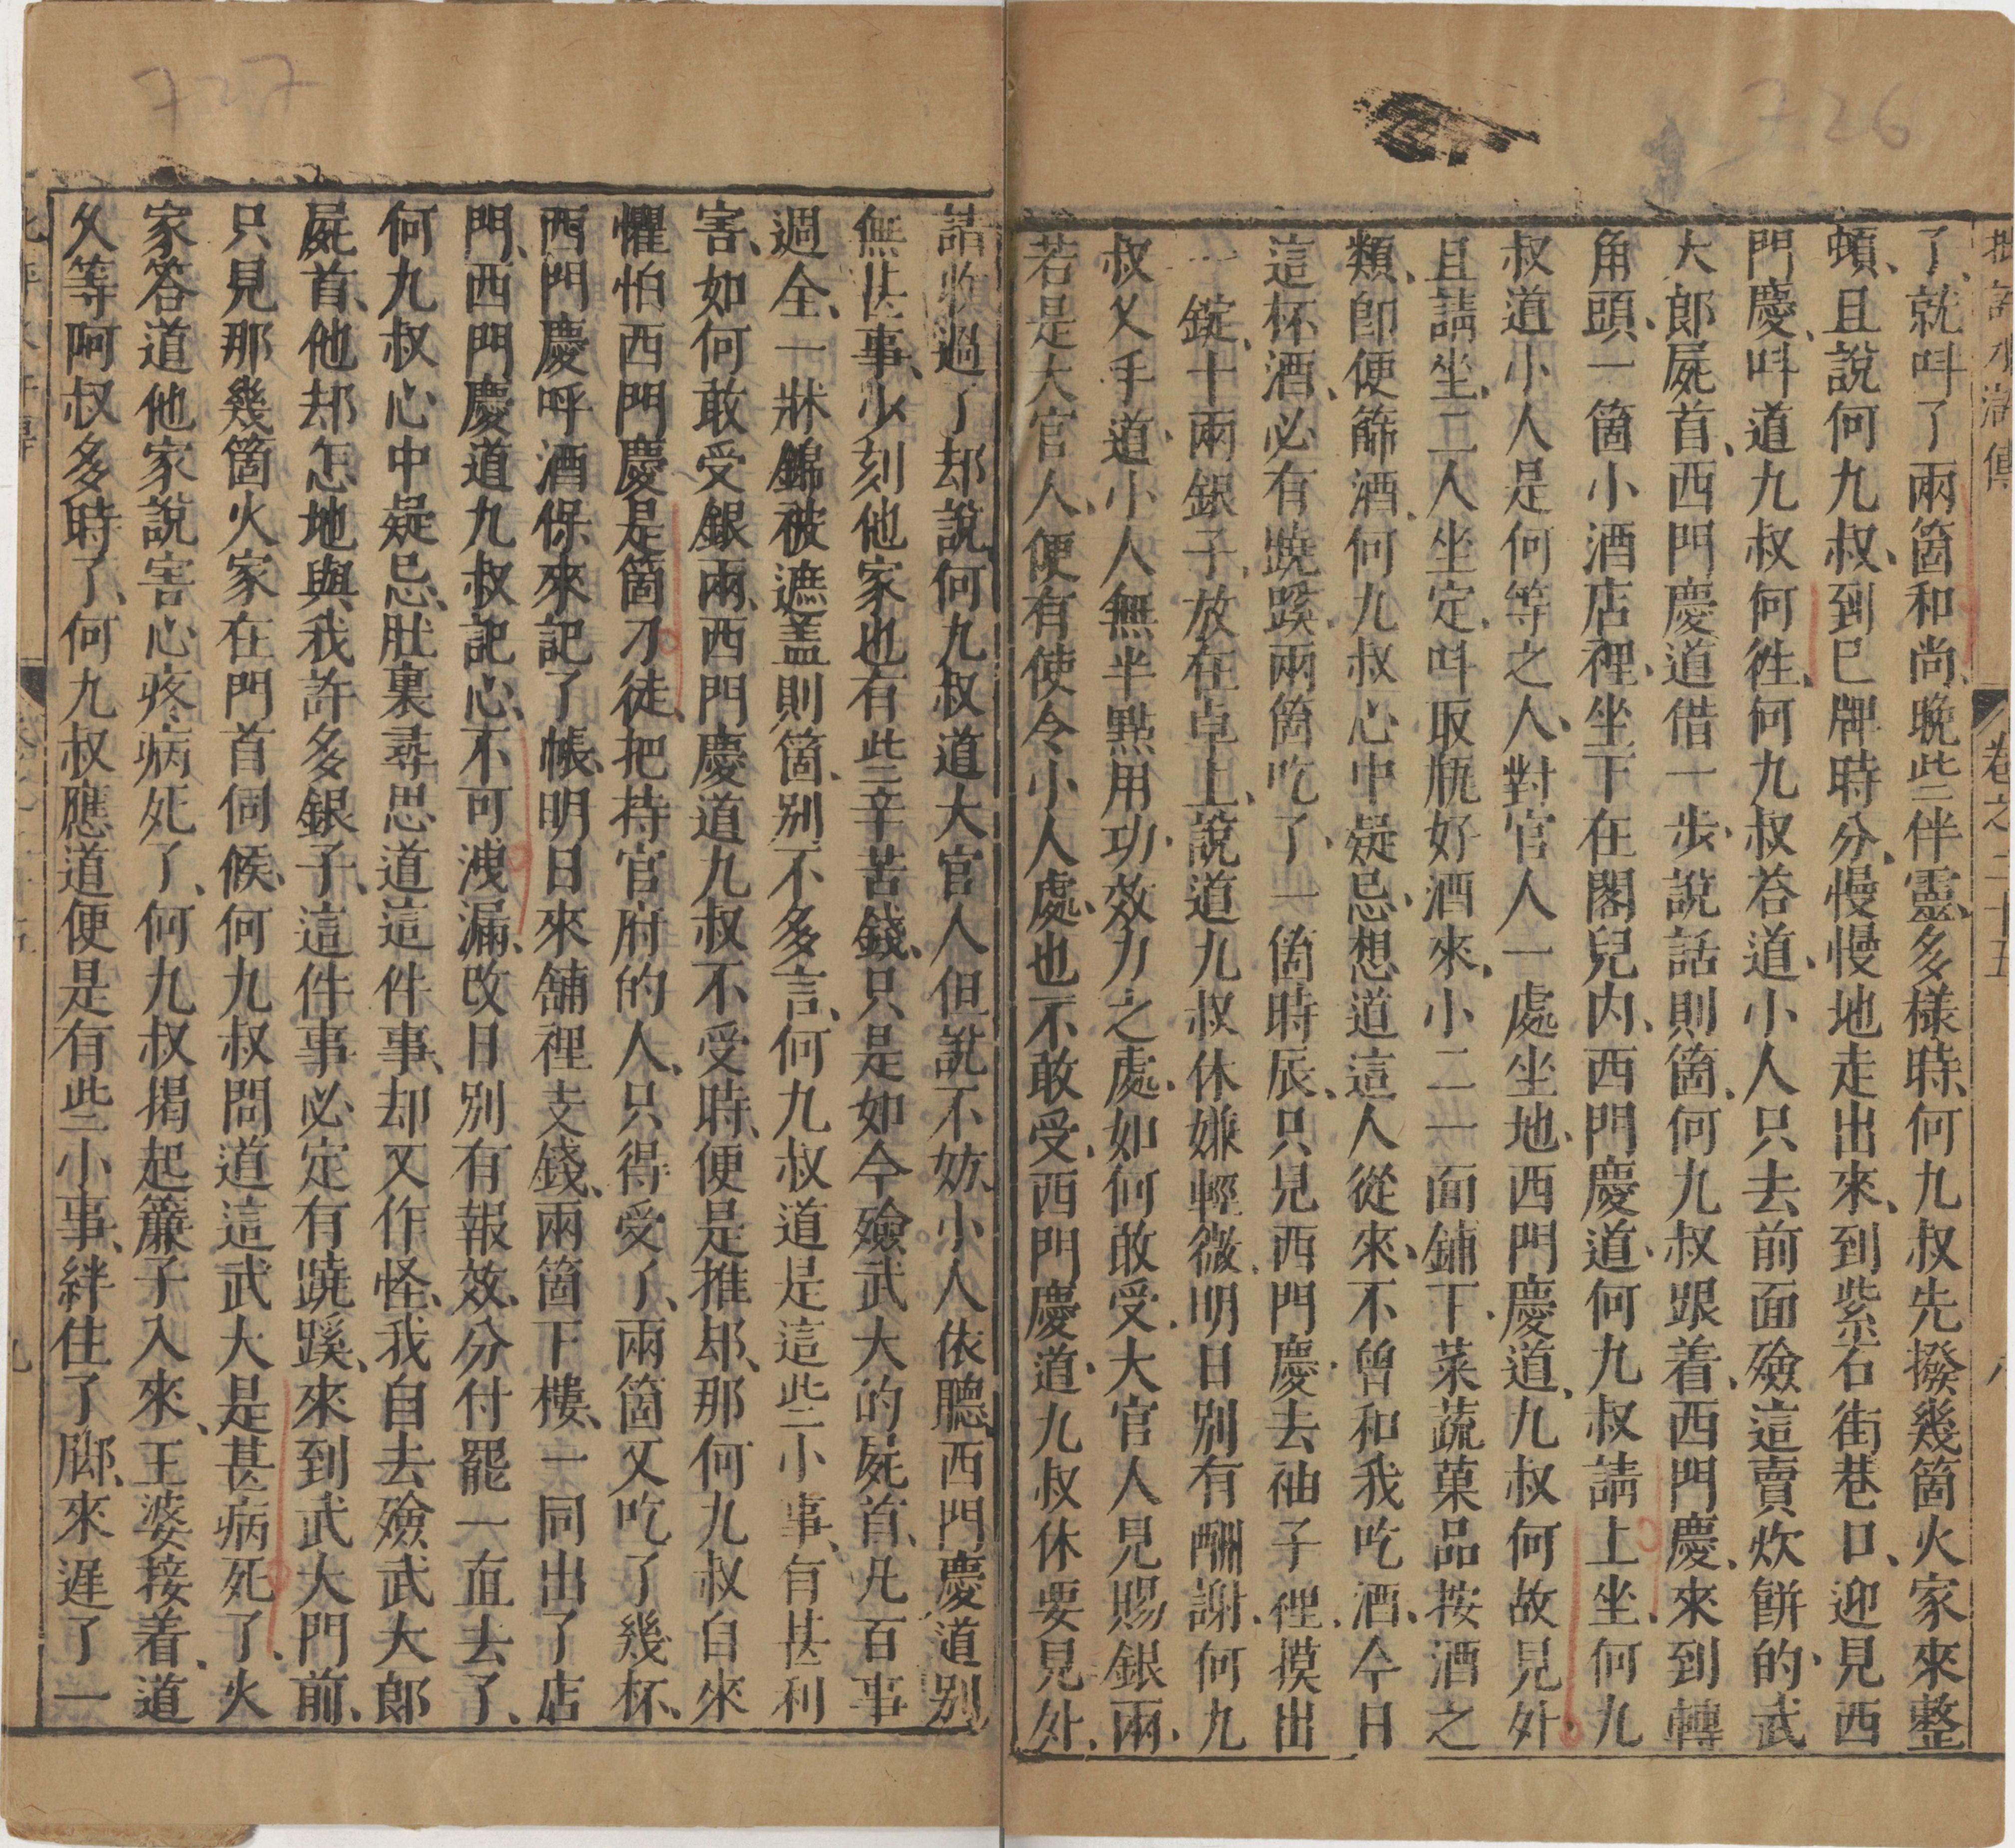 726
卷之二十五
了、就呌了兩箇和尚、晚些伴靈、多樣時、何九叔先撥幾箇火家來整
頓、且說何九叔、到巳牌時分、慢慢地走出來、到紫石街巷口、迎見西
門慶、呌道九叔何徃、何九叔荅道、小人只去前面殮這賣炊餅的、武
大郎屍首、西門慶道借一步、說話則箇、何九叔跟着、西門慶、來到轉
角頭、一箇小酒店裡、坐下在閣兒内、西門慶道、何九叔請上坐、何九
叔道小人是何等之人、對官人一處坐地、西門慶道、九叔何故見外、
且請坐、二人坐定、呌取瓶好酒來、小二一面鋪下、菜蔬菓品按酒之
類、卽便篩酒、何九叔心中疑忌、想道這人從來、不曾和我吃酒、今日
這杯酒、必有蹺蹊、兩箇吃了、一箇時辰、只見西門慶、去袖子裡、摸出
一錠、十兩銀子、放在卓上、說道九叔休嫌輕微、明日別有酬謝、何九
叔叉手道、小人無半點用功、效力之處、如何敢受、大官人見賜銀兩、
若是大官人、便有使令小人處、也不敢受、西門慶道、九叔休要見外、
727
請收過了却說何九叔道大官人但說不妨、小人依聽、西門慶道別
無甚事、少刻他家也有些辛苦錢、只是如今殮武大的屍首、凡百事
週全、一牀錦被遮盖則箇、別不多言、何九叔道是這些小事、有甚利
害、如何敢受銀兩、西門慶道九叔不受時、便是推却、那何九叔自來
懼怕西門慶是箇刁徒、把持官府的人、只得受了、兩箇又吃了幾杯、
西門慶呼酒保來記了帳、明日來舖裡支錢、兩箇下樓、一同出了店
門、西門慶道九叔記心、不可洩漏、改日別有報效、分付罷一直去了、
何九叔心中疑忌、肚裏尋思道這件事、却又作怪、我自去殮武大郎
屍首、他却怎地與我許多銀子、這件事必定有蹺蹊、來到武大門前、
只見那幾箇火家在門首伺候、何九叔問道這武大是甚病死了、火
家答道他家說害心疼病死了、何九叔揭起簾子入來、王婆接着、道
久等阿叔多時了、何九叔應道便是有些小事、絆住了脚、來遲了一